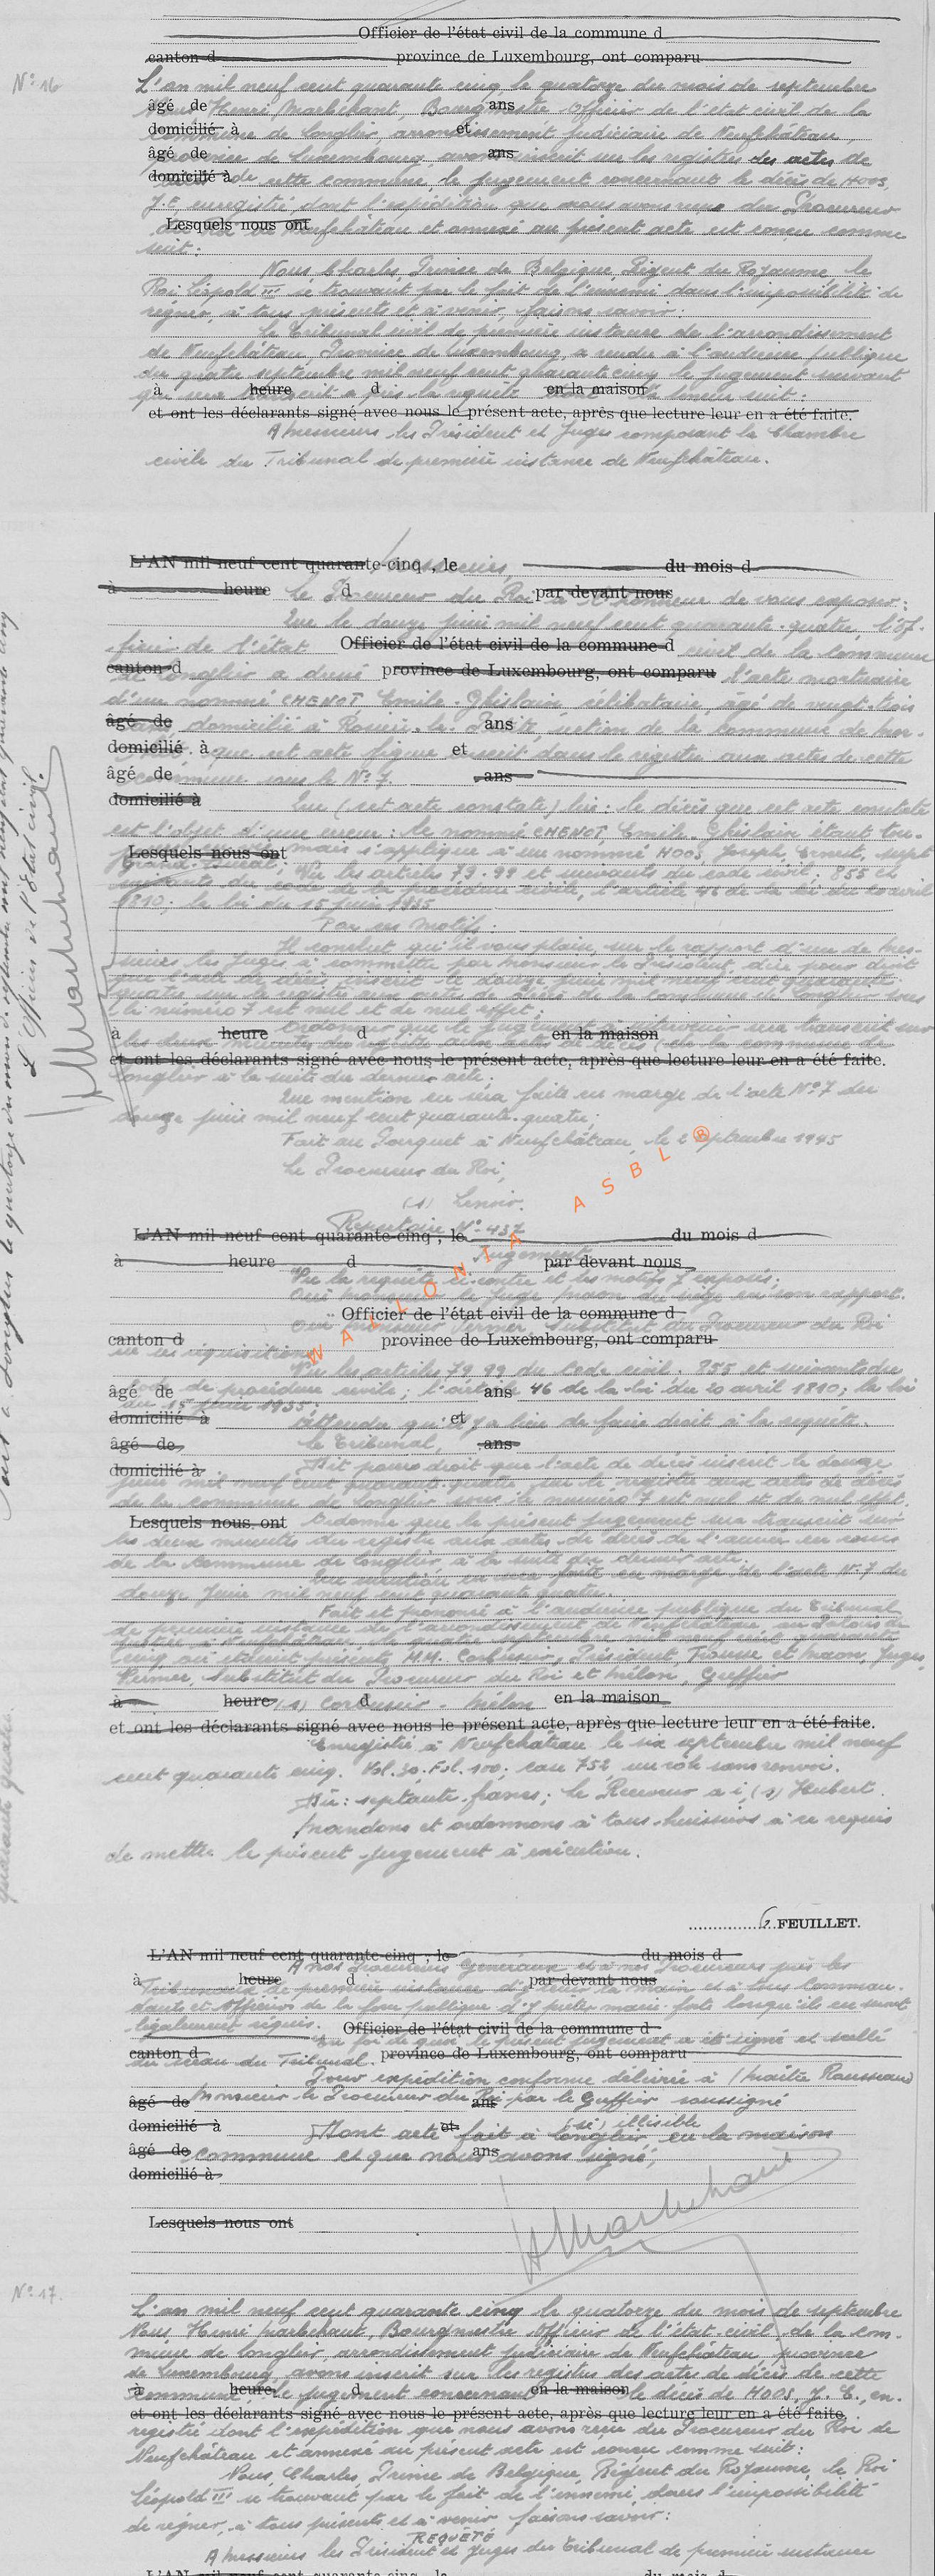 Officier de l'état civil de la commune d
canton d province de Luxembourg, ont comparu
N° 16
L'an mil neuf cent quarante cinq, le quatorze du mois de septembre
âgé de ans
Nous Henri Marbehant, Bourgmestre Officier de l'état civil de la
domicilié à et
commune de Longlier, arrondissement judiciaire de Neufchâteau,
âgé de ans
province de Luxembourg, avons inscrit sur les registres des actes de
domicilié à
de cette commune, le jugement concernant le décès de HOOS,
J.E, enregistré, dont l'expédition que nous avons reçue du Procureur
Lesquels nous ont
du Roi de Neufchâteau et annexé au présent acte est conçu comme
suit:
Nous Charles, Prince de Belgique, Régent du Royaume, le
Roi Léopold III se trouvant par le fait de l'ennemi dans l'impossibilité de
régner, à tous présents et à venir, faisons savoir:
Le Tribunal civil de première instance de l'arrondissement
de Neufchâteau, Province de Luxembourg, a rendu à l'audience publique
du quatre septembre mil neuf cent quarante cinq le jugement suivant
à heure d en la maison
suit:
et ont les déclarants signé avec nous le présent acte, après que lecture leur en a été faite.
A messieurs les Président et Juges composant la Chambre
civile du Tribunal de première instance de Neufchâteau.
L'AN mil neuf cent quarante-cinq, le du mois d
Messieurs,
à heure d par devant nous
Le Procureur du Roi a l'honneur de vous exposer:
Que le douze juin mil neuf cent quarante-quatre, l'of-
Officier de l'état civil de la commune d
ficier de l'état civil de la commune
canton d province de Luxembourg, ont comparu
de Longlier a dressé l'acte mortuaire
d'un nommé CHENOT, Emile-Ghislain, célibataire, âgé de vingt-trois
âgé de ans
ans, domicilié à section de la commune de
domicilié à et
que cet acte figure inscrit dans le registre aux actes de cette
âgé de ans
commune sous le N° 7.
domicilié à
Que (cet acte constate) lire: le décès que cet acte constate
est l'objet d'une erreur: le nommé CHENOT Emile-Ghislain étant
Lesquels nous ont
mais s'applique à un nommé HOOS, Joseph, Ernest, sujet
Vu les articles 79-99 et suivants du code civil; 855 et
suivants du code de la procédure civile, l'article 46 de la loi du 20 avril
1810; la loi du 15 juin 1935
Par ces motifs:
Il conclut qu'il vous plaise, sur le rapport d'un de Mes-
sieurs les Juges à commettre par Monsieur le Président, dire pour droit
que l'acte de décès inscrit le douze juin mil neuf cent quarante
quatre sur le registre aux actes de décès de la commune de Longlier sous
le numéro 7 est nul et de nul effet;
à heure d en la maison
et ont les déclarants signé avec nous le présent acte, après que lecture leur en a été faite.
Longlier à la suite du dernier acte;
Que mention en sera faite en marge de l'acte N° 7 du
douze juin mil neuf cent quarante-quatre;
Fait au Parquet à Neufchâteau, le 2 septembre 1945
Le Procureur du Roi,
(s) Lenoir.
L'Officier de l'état civil.
WALLONIA ASBL ®
Répertoire N° 437
L'AN mil neuf cent quarante-cinq, le du mois d
Jugement
à heure d par devant nous
Vu la requête ci-contre et les motifs y exposés;
Ouï Monsieur le Juge Maon du siège en son rapport.
Officier de l'état civil de la commune d
Ouï Monsieur Substitut du Procureur du Roi
canton d province de Luxembourg, ont comparu
en ses réquisitions
Vu les articles 79, 99 du Code civil; 855 et suivants du
âgé de ans
Code de procédure civile; l'article 46 de la loi du 20 avril 1810; la loi
du 15 juin 1935;
domicilié à et
Attendu qu'il y a lieu de faire droit à la requête.
âgé de ans
Le Tribunal,
domicilié à
Dit pour droit que l'acte de décès inscrit le douze
juin mil neuf cent quarante quatre sur le registre aux actes de décès
de la commune de Longlier sous le numéro 7 est nul et de nul effet.
Lesquels nous ont
Ordonne que le présent jugement sera transcrit sur
les deux minutes du registre aux actes de décès de l'année en cours
de la commune de Longlier à la suite du dernier acte.
Que mention en sera faite en marge de l'acte N° 7 du
douze juin mil neuf cent quarante quatre.
Fait et prononcé à l'audience publique du Tribunal
de première instance de l'arrondissement de Neufchâteau
quatre septembre mil neuf cent quarante
cinq où étaient présents M.M. Corbusier, Président, et Maon, Juges,
substitut du Procureur du Roi et Mélon, Greffier
à heure d en la maison
(s) Corbusier - Mélon
et ont les déclarants signé avec nous le présent acte, après que lecture leur en a été faite.
Enregistré à Neufchâteau le six septembre mil neuf
cent quarante cinq. Vol. 30. Fol. 100; case 752, un rôle sans renvoi.
Dû: septante francs; le Receveur a i, (s) Hubert.
Mandons et ordonnons à tous huissiers à ce requis
de mettre le présent jugement à exécution.
6 FEUILLET.
L'AN mil neuf cent quarante-cinq, le du mois d
A nos Procureurs Généraux et à nos Procureurs près les
à heure d par devant nous
Tribunaux de première instance d'y tenir la main et à tous Comman-
dants et Officiers de la force publique d'y prêter main forte lorsqu'ils en seront
légalement requis.
Officier de l'état civil de la commune d
En foi de quoi, le présent jugement a été signé et scellé
canton d province de Luxembourg, ont comparu
du sceau du Tribunal.
Pour expédition conforme délivrée à
âgé de ans
Monsieur le Procureur du Roi par le Greffier soussigné
(sé) illisible
domicilié à et
Dont acte fait à Longlier en la maison
âgé de ans
commune et que nous avons signé,
domicilié à
HMarbehant
Lesquels nous ont
N° 17.
L'an mil neuf cent quarante cinq le quatorze du mois de septembre
Nous, Henri Marbehant, Bourgmestre Officier de l'état-civil de la com-
mune de Longlier, arrondissement judiciaire de Neufchâteau, province
de Luxembourg, avons inscrit sur les registres des actes de décès de cette
à heure d en la maison
commune, le jugement concernant le décès de HOOS, J. E., en-
et ont les déclarants signé avec nous le présent acte, après que lecture leur en a été faite.
registré dont l'expédition que nous avons reçu du Procureur du Roi de
Neufchâteau et annexé au présent acte est conçu comme suit:
Nous, Charles, Prince de Belgique, Régent du Royaume, le Roi
Léopold III se trouvant par le fait de l'ennemi, dans l'impossibilité
de régner, à tous présents et à venir, faisons savoir:
REQUÊTE
A Messieurs les Président et Juges du Tribunal de première instance